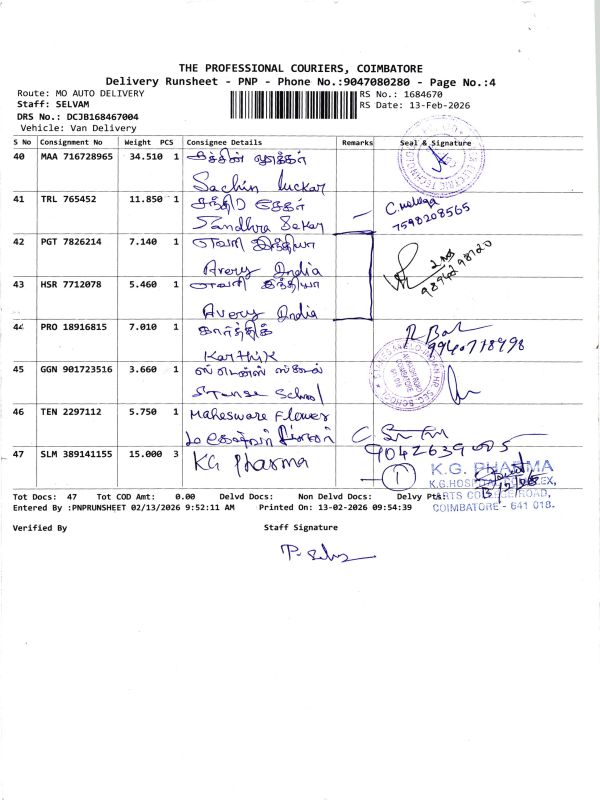 THE PROFESSIONAL COURIERS, COIMBATORE
Delivery Runsheet - PNP - Phone No.:9047080280 - Page No.:4
Route: MO AUTO DELIVERY
RS No.: 1684670
Staff: SELVAM
RS Date: 13-Feb-2026
DRS No.: DCJB168467004
Vehicle: Van Delivery
S No Consignment No Weight PCS Consignee Details Remarks Seal & Signature
40 MAA 716728965 34.510 1
Sachin
41 TRL 765452 11.850 1 சந்திர சேகர்
Sandhra Sekar
7598208565
42 PGT 7826214 7.140 1 எவரி இந்தியா
Avery India
98942 98720
43 HSR 7712078 5.460 1 எவரி இந்தியா
Avery India
44 PRO 18916815 7.010 1 கார்த்திக்
Karthik
9940718498
45 GGN 901723516 3.660 1 ஸ்டேன்ஸ் ஸ்கூல்
School
46 TEN 2297112 5.750 1 Maheswari Flower
9042639005
47 SLM 389141155 15.000 3 KG Pharma
1
K.G. PHARMA
K.G.HOSPITAL COMPLEX,
ARTS COLLEGE ROAD,
COIMBATORE - 641 018.
Tot Docs: 47 Tot COD Amt: 0.00 Delvd Docs: Non Delvd Docs: Delvy Pts:
Entered By :PNPRUNSHEET 02/13/2026 9:52:11 AM Printed On: 13-02-2026 09:54:39
Verified By Staff Signature